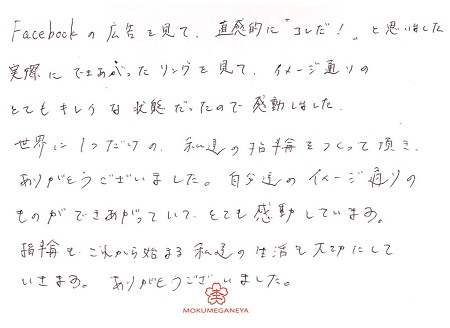 Facebookの広告を見て、直感的に"コレだ!"と思いました
実際にできあがったリングを見て、イメージ通りの
とてもキレイな状態だったので感動しました.
世界に1つだけの、私達の指輪をつくって頂き、
ありがとうございました。自分達のイメージ通りの
ものができあがっていて、とても感動しています。
指輪も、これから始まる私達の生活も大切にして
いきます。ありがとうございました。
MOKUMEGANEYA